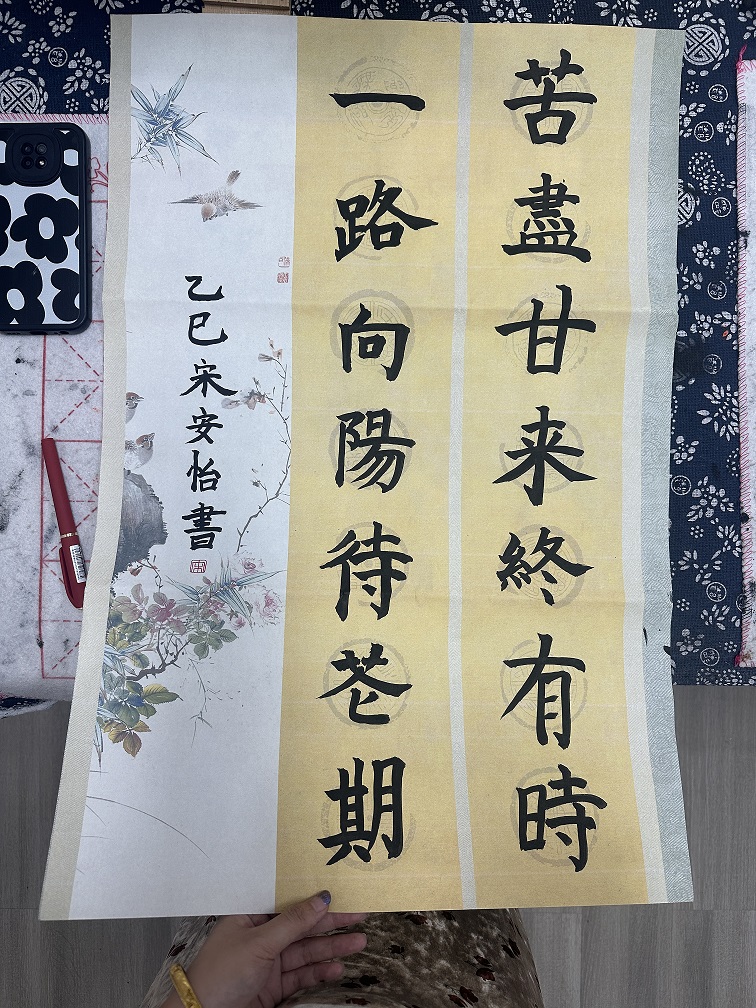 苦盡甘来終有時
一路向陽待花期
乙巳宋安怡書